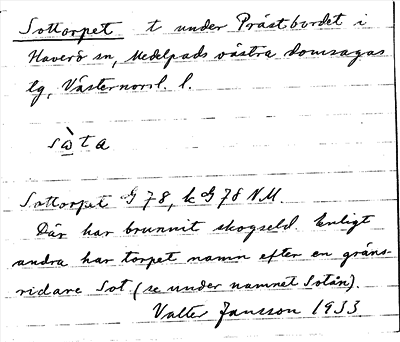 Sottorpet t under Prästbordet i
Haverö sn, Medelpads västra domsagas
tg, Västernorrl. l.
sὼta
Sottorpet G 78, k G 78 NM.
Där har brunnit skogseld. Enligt
andra har torpet namn efter en gräns-
ridare Sot (se under namnet Sotån).
Valter Jansson 1933